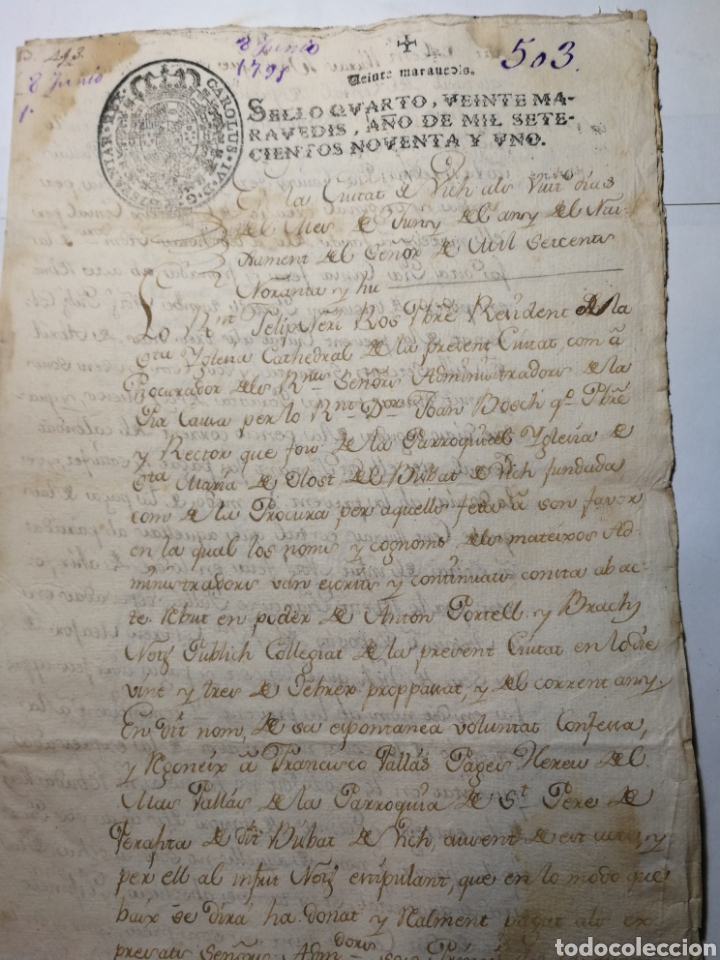 B. 493.
8 Junio
1.
8 Junio
1791
503.
Veinte maravedis.
SELLO QVARTO, VEINTE MA-
RAVEDIS, AÑO DE MIL SETE-
CIENTOS NOVENTA Y VNO.
CAROLUS IV D. G. HISPANIAR. REX
En la Ciutat de Vich als Vuit dias
del Mes de Juny del any del Nai-
xament del Señor de Mil Setcents
Noranta y hu
Lo Rnt Felip Neri Ros Pbre Resident de la
Sta Yglesia Cathedral de la present Ciutat, com á
Procurador dels Rnts Señors Administradors de la
Pia Causa per lo Rnt Dor Joan Bosch qº Pbre
y Rector que fou de la Parroquial Yglesia de
Sta Maria de Olost del Bisbat de Vich fundada
com de la Procura, per aquells feta á son favor
en la qual los noms, y cognoms dels mateixos Ad-
ministradors van escrits y continuats consta ab ac-
te rebut en poder de Anton Portell y Brach
Notj Publich Collegiat de la present Ciutat en lo die
vint y tres de Febrer proppassat, y del corrent any.
En dit nom, de sa espontanea voluntat Confessa,
y Regoneix á Francisco Pallás Pages Hereu del
Mas Pallás de la Parroquia de St Pere de
Perafita de dit Bisbat de Vich, ausent de est acte, y
per ell al infrit Notj estipulant, que en lo modo que
baix se dirá ha donat y Realment pagat als ex-
presats Señors Admdors